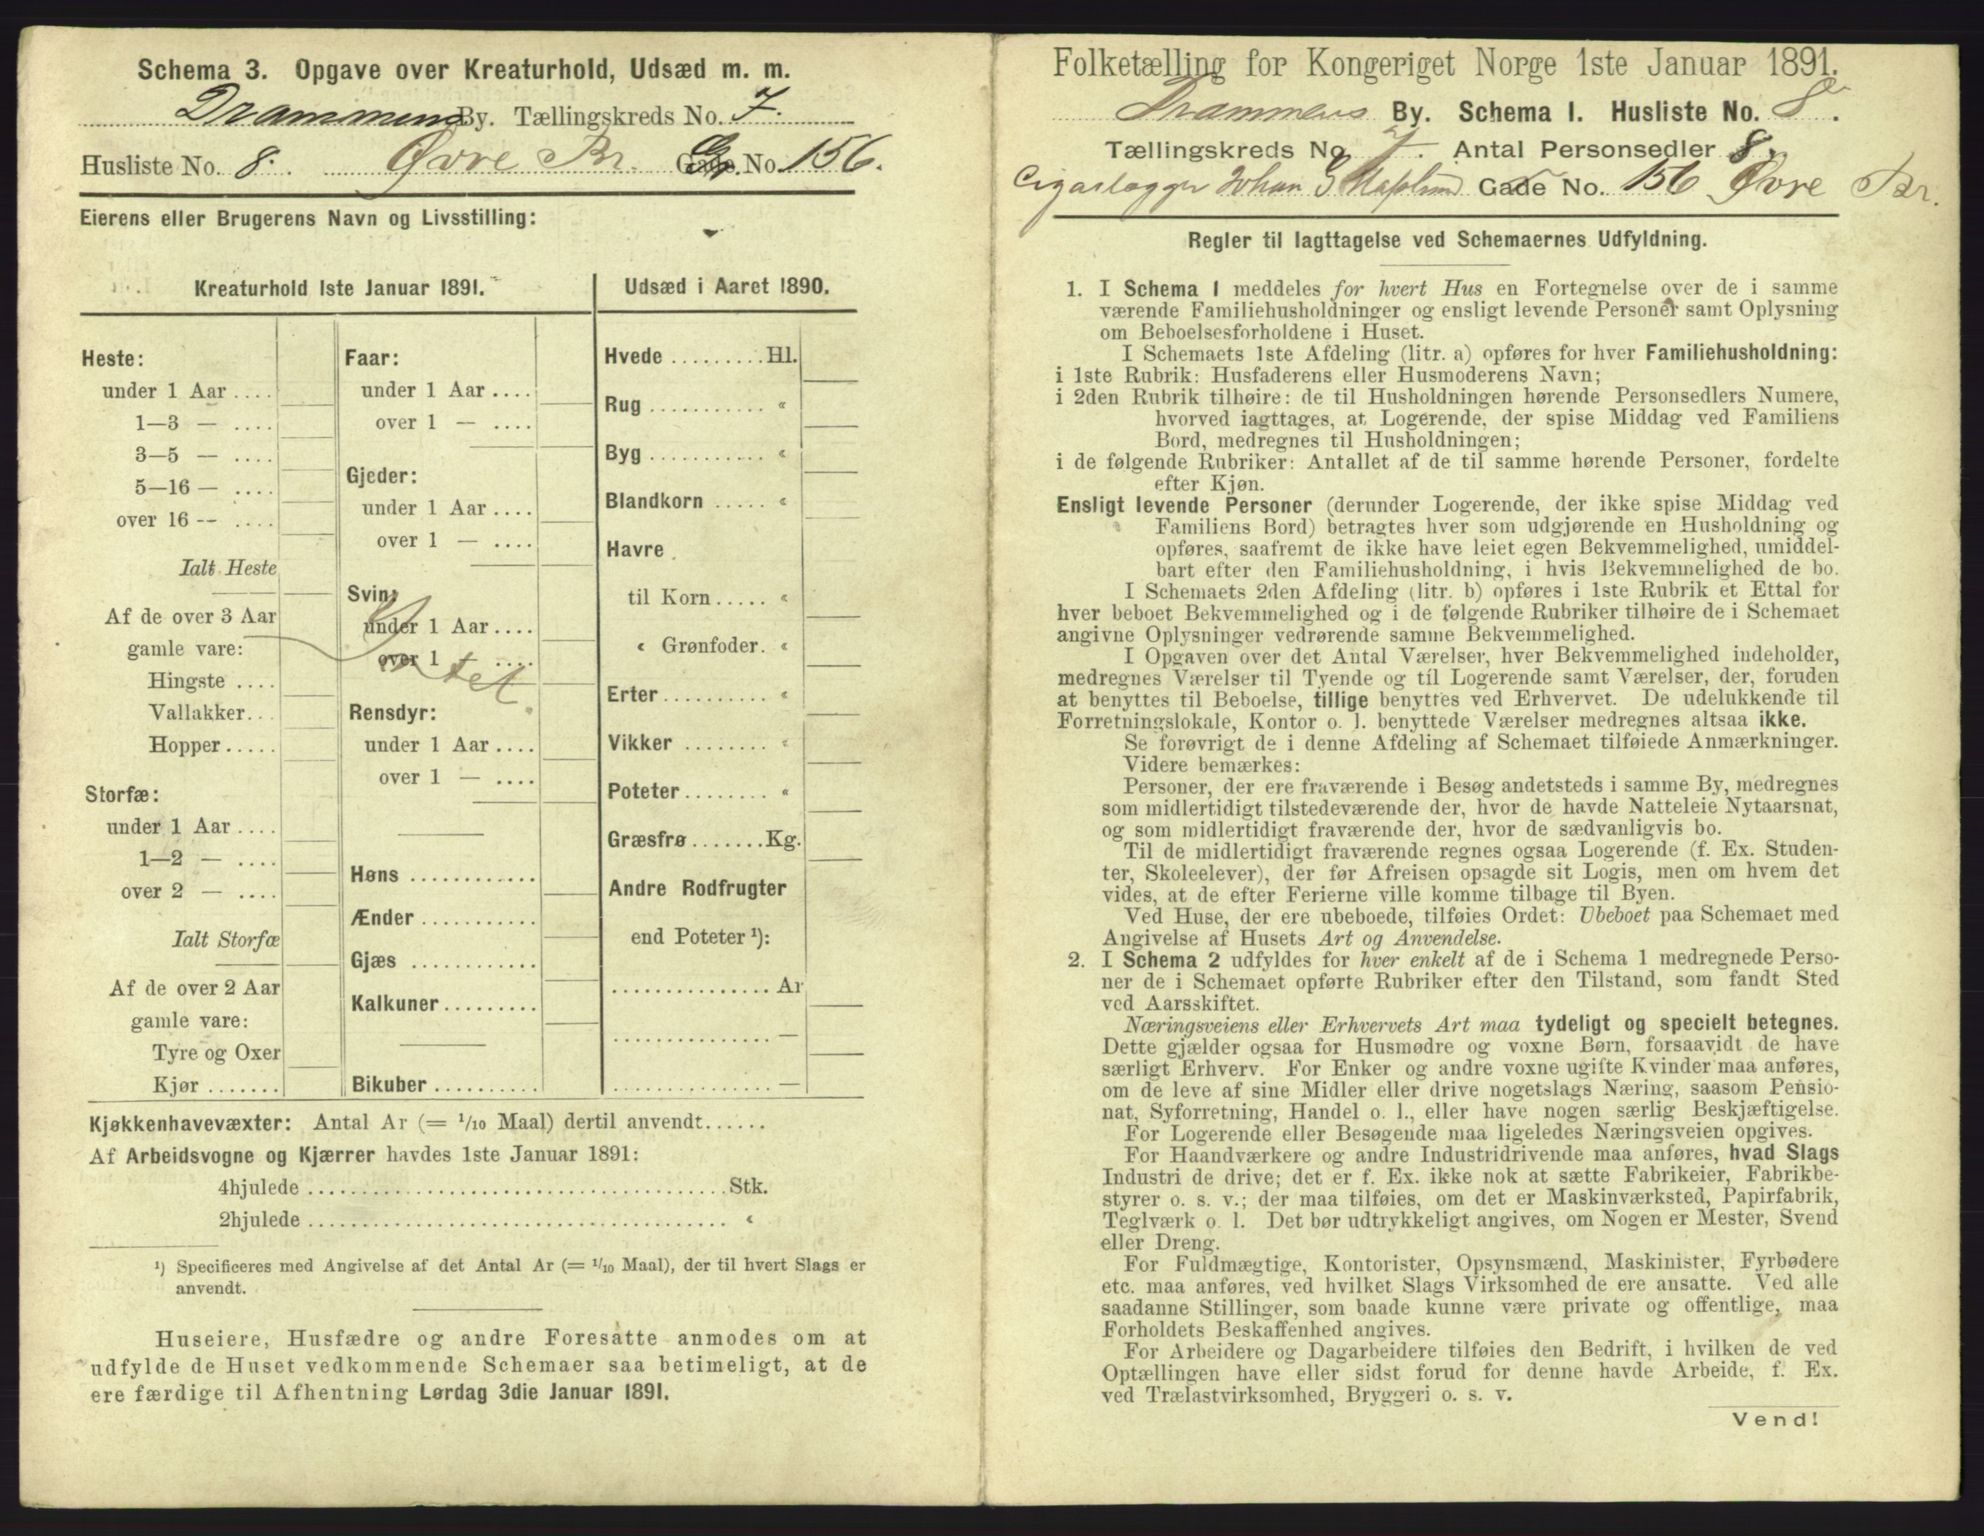 Schema 3. Opgave over Kreaturhold, Udsæd m. m.
Drammens By. Tællingskreds No. 7.
Husliste No. 8. Øvre Br. Gade No. 156.
Eierens eller Brugerens Navn og Livsstilling:
Kreaturhold 1ste Januar 1891.
Heste:
under 1 Aar ....
1—3 — ....
3—5 — ....
5—16 — ....
over 16 — ....
Ialt Heste
Af de over 3 Aar
gamle vare:
Hingste ....
Vallakker...
Hopper .....
Storfæ:
under 1 Aar ....
1—2 — ....
over 2 — ....
Ialt Storfæ
Af de over 2 Aar
gamle vare:
Tyre og Oxer
Kjør .......
Faar:
under 1 Aar ....
over 1 — ....
Gjeder:
under 1 Aar ....
over 1 — ....
Svin:
under 1 Aar ....
over 1 — ....
Intet.
Rensdyr:
under 1 Aar ....
over 1 — ....
Høns ............
Ænder ...........
Gjæs ............
Kalkuner .........
Bikuber ..........
Udsæd i Aaret 1890.
Hvede ......... Hl.
Rug ........... «
Byg ........... «
Blandkorn ..... «
Havre
til Korn ..... «
« Grønfoder. «
Erter .......... «
Vikker ......... «
Poteter ........ «
Græsfrø ....... Kg.
Andre Rodfrugter
end Poteter ¹):
............... Ar
............... —
............... —
Kjøkkenhavevæxter: Antal Ar (= 1/10 Maal) dertil anvendt ......
Af Arbeidsvogne og Kjærrer havdes 1ste Januar 1891:
4hjulede ...................................... Stk.
2hjulede ...................................... «
¹) Specificeres med Angivelse af det Antal Ar (= 1/10 Maal), der til hvert Slags er
anvendt.
Huseiere, Husfædre og andre Foresatte anmodes om at
udfylde de Huset vedkommende Schemaer saa betimeligt, at de
ere færdige til Afhentning Lørdag 3die Januar 1891.
Folketælling for Kongeriget Norge 1ste Januar 1891.
Drammens By. Schema I. Husliste No. 8.
Tællingskreds No. 7. Antal Personsedler 8.
Johan Gade No. 156 Øvre Br.
Regler til Iagttagelse ved Schemaernes Udfyldning.
1. I Schema 1 meddeles for hvert Hus en Fortegnelse over de i samme
værende Familiehusholdninger og ensligt levende Personer samt Oplysning
om Beboelsesforholdene i Huset.
I Schemaets 1ste Afdeling (litr. a) opføres for hver Familiehusholdning:
i 1ste Rubrik: Husfaderens eller Husmoderens Navn;
i 2den Rubrik tilhøire: de til Husholdningen hørende Personsedlers Numere,
hvorved iagttages, at Logerende, der spise Middag ved Familiens
Bord, medregnes til Husholdningen;
i de følgende Rubriker: Antallet af de til samme hørende Personer, fordelte
efter Kjøn.
Ensligt levende Personer (derunder Logerende, der ikke spise Middag ved
Familiens Bord) betragtes hver som udgjørende en Husholdning og
opføres, saafremt de ikke have leiet egen Bekvemmelighed, umiddel-
bart efter den Familiehusholdning, i hvis Bekvemmelighed de bo.
I Schemaets 2den Afdeling (litr. b) opføres i 1ste Rubrik et Ettal for
hver beboet Bekvemmelighed og i de følgende Rubriker tilhøire de i Schemaet
angivne Oplysninger vedrørende samme Bekvemmelighed.
I Opgaven over det Antal Værelser, hver Bekvemmelighed indeholder,
medregnes Værelser til Tyende og til Logerende samt Værelser, der, foruden
at benyttes til Beboelse, tillige benyttes ved Erhvervet. De udelukkende til
Forretningslokale, Kontor o. l. benyttede Værelser medregnes altsaa ikke.
Se forøvrigt de i denne Afdeling af Schemaet tilføiede Anmærkninger.
Videre bemærkes:
Personer, der ere fraværende i Besøg andetsteds i samme By, medregnes
som midlertidigt tilstedeværende der, hvor de havde Natteleie Nytaarsnat,
og som midlertidigt fraværende der, hvor de sædvanligvis bo.
Til de midlertidigt fraværende regnes ogsaa Logerende (f. Ex. Studen-
ter, Skoleelever), der før Afreisen opsagde sit Logis, men om hvem det
vides, at de efter Ferierne ville komme tilbage til Byen.
Ved Huse, der ere ubeboede, tilføies Ordet: Ubeboet paa Schemaet med
Angivelse af Husets Art og Anvendelse.
2. I Schema 2 udfyldes for hver enkelt af de i Schema 1 medregnede Perso-
ner de i Schemaet opførte Rubriker efter den Tilstand, som fandt Sted
ved Aarsskiftet.
Næringsveiens eller Erhvervets Art maa tydeligt og specielt betegnes.
Dette gjælder ogsaa for Husmødre og voxne Børn, forsaavidt de have
særligt Erhverv. For Enker og andre voxne ugifte Kvinder maa anføres,
om de leve af sine Midler eller drive nogetslags Næring, saasom Pensio-
nat, Syforretning, Handel o. l., eller have nogen særlig Beskjæftigelse.
For Logerende eller Besøgende maa ligeledes Næringsveien opgives.
For Haandværkere og andre Industridrivende maa anføres, hvad Slags
Industri de drive; det er f. Ex. ikke nok at sætte Fabrikeier, Fabrikbe-
styrer o. s. v.; der maa tilføies, om det er Maskinværksted, Papirfabrik,
Teglværk o. l. Det bør udtrykkeligt angives, om Nogen er Mester, Svend
eller Dreng.
For Fuldmægtige, Kontorister, Opsynsmænd, Maskinister, Fyrbødere
etc. maa anføres, ved hvilket Slags Virksomhed de ere ansatte. Ved alle
saadanne Stillinger, som baade kunne være private og offentlige, maa
Forholdets Beskaffenhed angives.
For Arbeidere og Dagarbeidere tilføies den Bedrift, i hvilken de ved
Optællingen have eller sidst forud for denne havde Arbeide, f. Ex.
ved Trælastvirksomhed, Bryggeri o. s. v.
Vend!